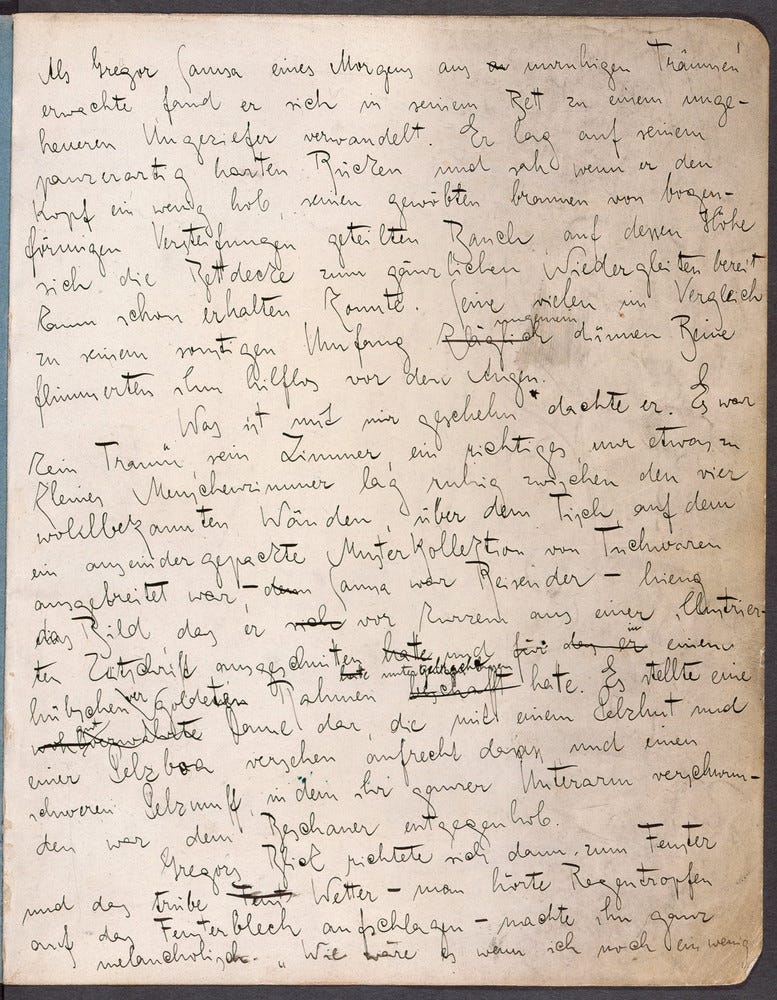 Als Gregor Samsa eines Morgens aus unruhigen Träumen
erwachte, fand er sich in seinem Bett zu einem unge-
heueren Ungeziefer verwandelt. Er lag auf seinem
panzerartig harten Rücken und sah wenn er den
Kopf ein wenig hob, seinen gewölbten braunen von bogen-
förmigen Versteifungen geteilten Bauch, auf dessen Höhe
sich die Bettdecke zum gänzlichen Niedergleiten bereit
kaum schon erhalten konnte. Seine vielen im Vergleich
ungemein
zu seinem sonstigen Umfang kläglich dünnen Beine
flimmerten ihm hilflos vor den Augen.
Was ist mit mir geschehn" dachte er. Es war
kein Traum sein Zimmer, ein richtiges nur etwas zu
kleines Menschenzimmer lag ruhig zwischen den vier
wohlbekannten Wänden, über dem Tisch, auf dem
ein auseinandergepackte Musterkollektion von Tuchwaren
ausgebreitet war - denn Samsa war Reisender - hieng
das Bild das er sich vor kurzem aus einer illustrier-
in
ten Zeitschrift ausgeschnitten hatte und für das er einem
untergebracht
hübschen vergoldeten Rahmen hatte. Es stellte eine
Dame dar, die mit einem Pelzhut und
einer Pelzboa versehen aufrecht dasass und einen
schweren Pelzmuff, in dem ihr ganzer Unterarm verschwun-
den war dem Beschauer entgegenhob.
Gregors Blick richtete sich dann zum Fenster
und das trübe Wetter - man hörte Regentropfen
auf das Fensterblech aufschlagen - machte ihn ganz
melancholisch. „Wie wäre es wenn ich noch ein wenig